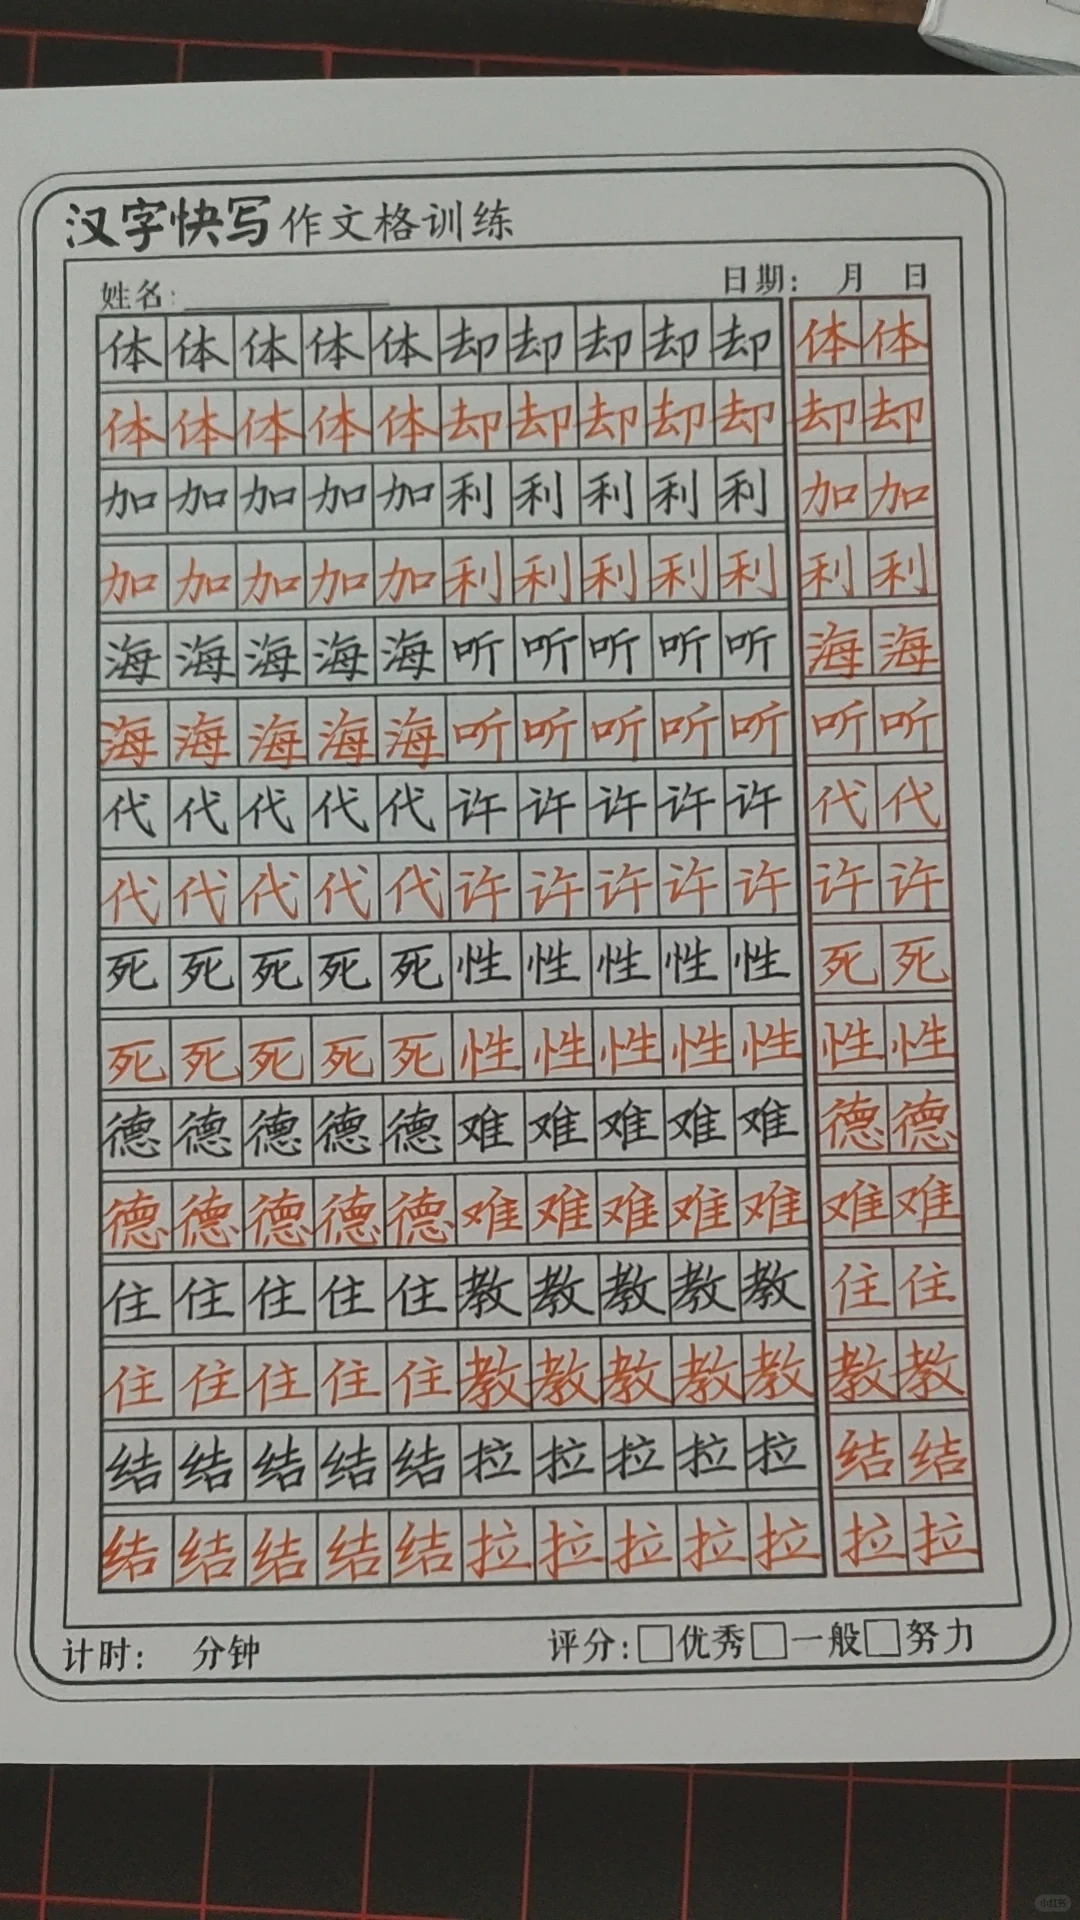 汉字快写作文格训练
姓名: 日期: 月 日
体体体体体却却却却却 体体
体体体体体却却却却却 却却
加加加加加利利利利利 加加
加加加加加利利利利利 利利
海海海海海听听听听听 海海
海海海海海听听听听听 听听
代代代代代许许许许许 代代
代代代代代许许许许许 许许
死死死死死性性性性性 死死
死死死死死性性性性性 性性
德德德德德难难难难难 德德
德德德德德难难难难难 难难
住住住住住教教教教教 住住
住住住住住教教教教教 教教
结结结结结拉拉拉拉拉 结结
结结结结结拉拉拉拉拉 拉拉
计时: 分钟 评分:□优秀□一般□努力